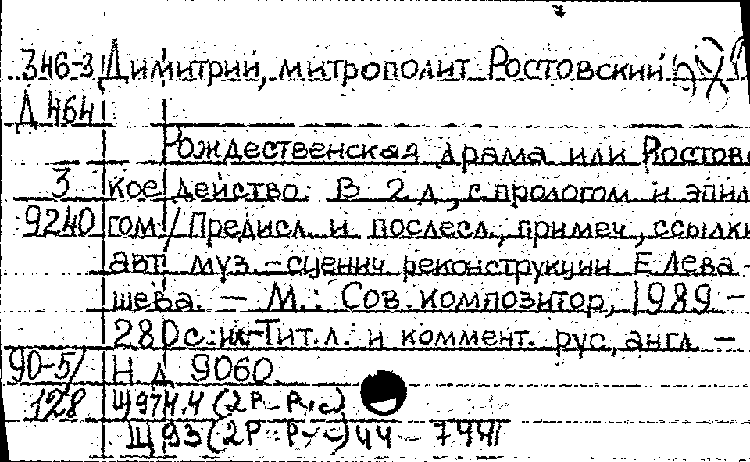 346-3 Димитрий, митрополит Ростовский
Д 464
Рождественская драма или Ростовс
3 кое действо. В 2 д., с прологом и эпил
9240 гом / Предисл. и послесл., примеч., ссылки
авт. муз.-сценич. реконструкции Е. Лева-
шева. — М.: Сов. композитор, 1989 —
280 с.: Тит. л. и коммент. рус., англ. —
90-5/ Н д 9060
128 Щ974.4 (2Р-Рус)
Щ93 (2Р-Рус) 44 - 7441